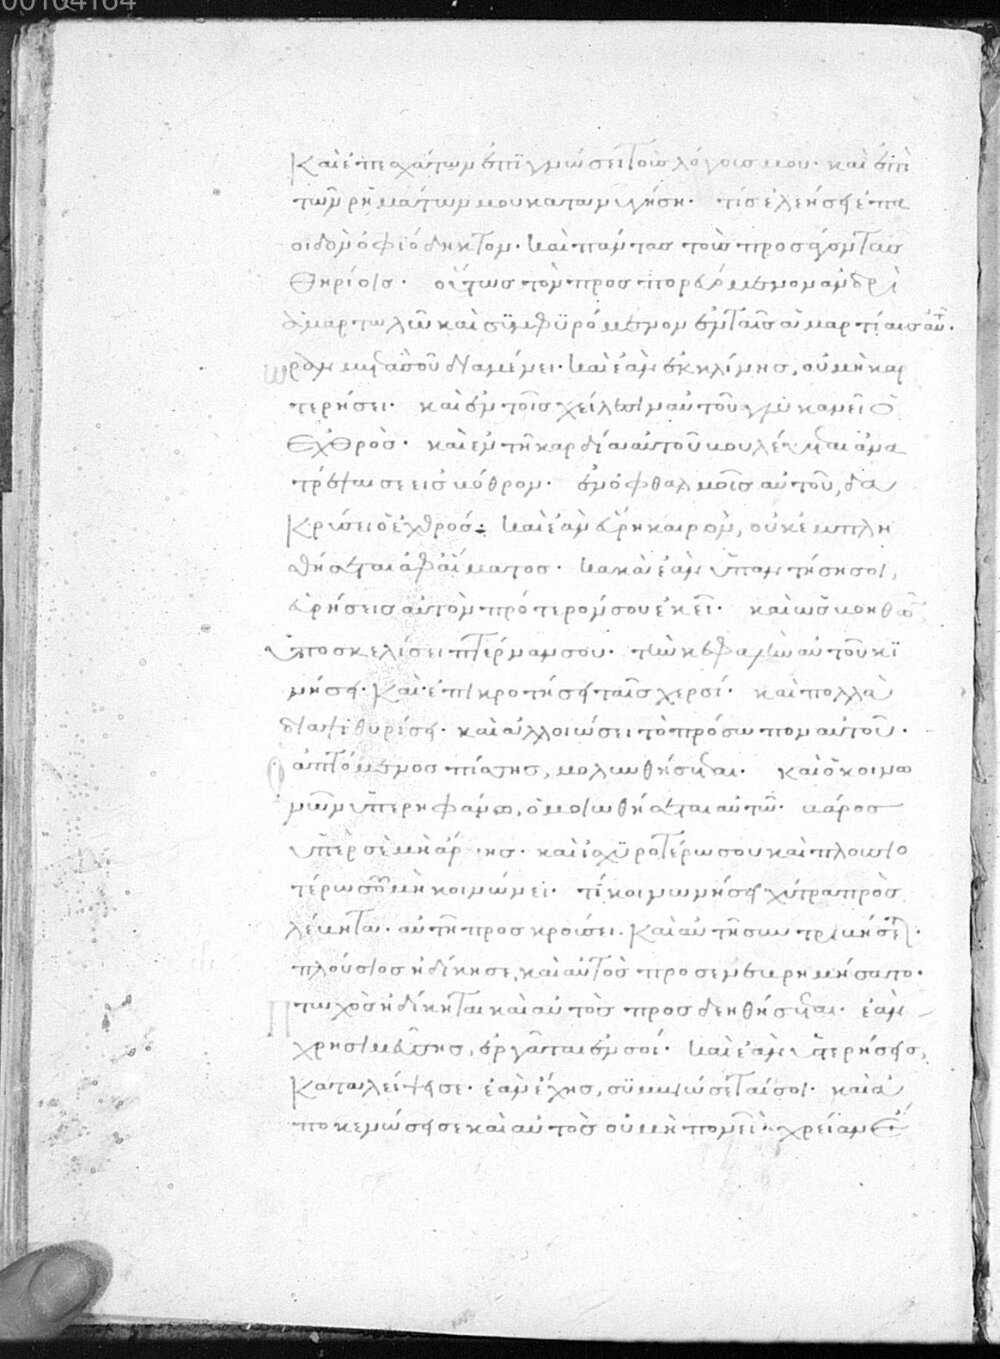 00164164
καὶ ἐπ' ἐσχάτων ἐπιγνώσει τοὺς λόγους μου· καὶ ἐπὶ
τῶν ῥημάτων μου κατανυγήση· τίς ἐλεήσει ἐπα
οιδὸν ὀφιόδηκτον· καὶ πάντας τοὺς προσάγοντας
θηρίοις· οὕτως τὸν προσπορευόμενον ἀνδρὶ
ἁμαρτωλῶ καὶ συμφυρόμενον ἐν ταῖς ἁμαρτίαις αὐτοῦ·
ὥραν μετὰ σοῦ διαμένει· καὶ ἐὰν ἐκκλίνης, οὐ μὴ καρ
τερήσει· καὶ ἐν τοῖς χείλεσιν αὐτοῦ γλυκανεῖ ὁ
ἐχθρός· καὶ ἐν τῆ καρδία αὐτοῦ βουλεύεται ἀνα
τρέψαι σε εἰς βόθρον· ἐν ὀφθαλμοῖς αὐτοῦ, δα
κρύσει ὁ ἐχθρός· καὶ ἐὰν εὕρη καιρὸν, οὐκ ἐμπλη
σθήσεται ἀφ' αἵματος· κακὰ ἐὰν ὑπαντήση σοι,
εὑρήσεις αὐτὸν πρότερόν σου ἐκεῖ· καὶ ὡς βοηθῶν
ὑποσκελίσει πτέρναν σου· τὴν κεφαλὴν αὐτοῦ κι
νήσει· καὶ ἐπικροτήσει ταῖς χερσί· καὶ πολλὰ
διαψιθυρίσει· καὶ ἀλλοιώσει τὸ πρόσωπον αὐτοῦ·
ὁ ἁπτόμενος πίσσης, μολυνθήσεται· καὶ ὁ κοινω
νῶν ὑπερηφάνω, ὁμοιωθήσεται αὐτῶ· βάρος
ὑπὲρ σὲ μὴ ἄρης· καὶ ἰσχυροτέρω σου καὶ πλουσιω
τέρω σου μὴ κοινώνει· τί κοινωνήσει χύτρα πρὸς
λέβητα· αὕτη προσκρούσει· καὶ αὕτη συντριβήσεται·
πλούσιος ἠδίκησε, καὶ αὐτὸς προσενεβριμήσατο·
πτωχὸς ἠδίκηται καὶ αὐτὸς προσδεηθήσεται· ἐὰν
χρησιμεύσης, ἐργᾶται ἐν σοί· καὶ ἐὰν ὑστερήσης,
καταλείψει σε· ἐὰν ἔχης, συμβιώσεταί σοι· καὶ ἀ
ποκενώσει σε καὶ αὐτὸς οὐ μὴ πονεῖ· χρείαν ἔ